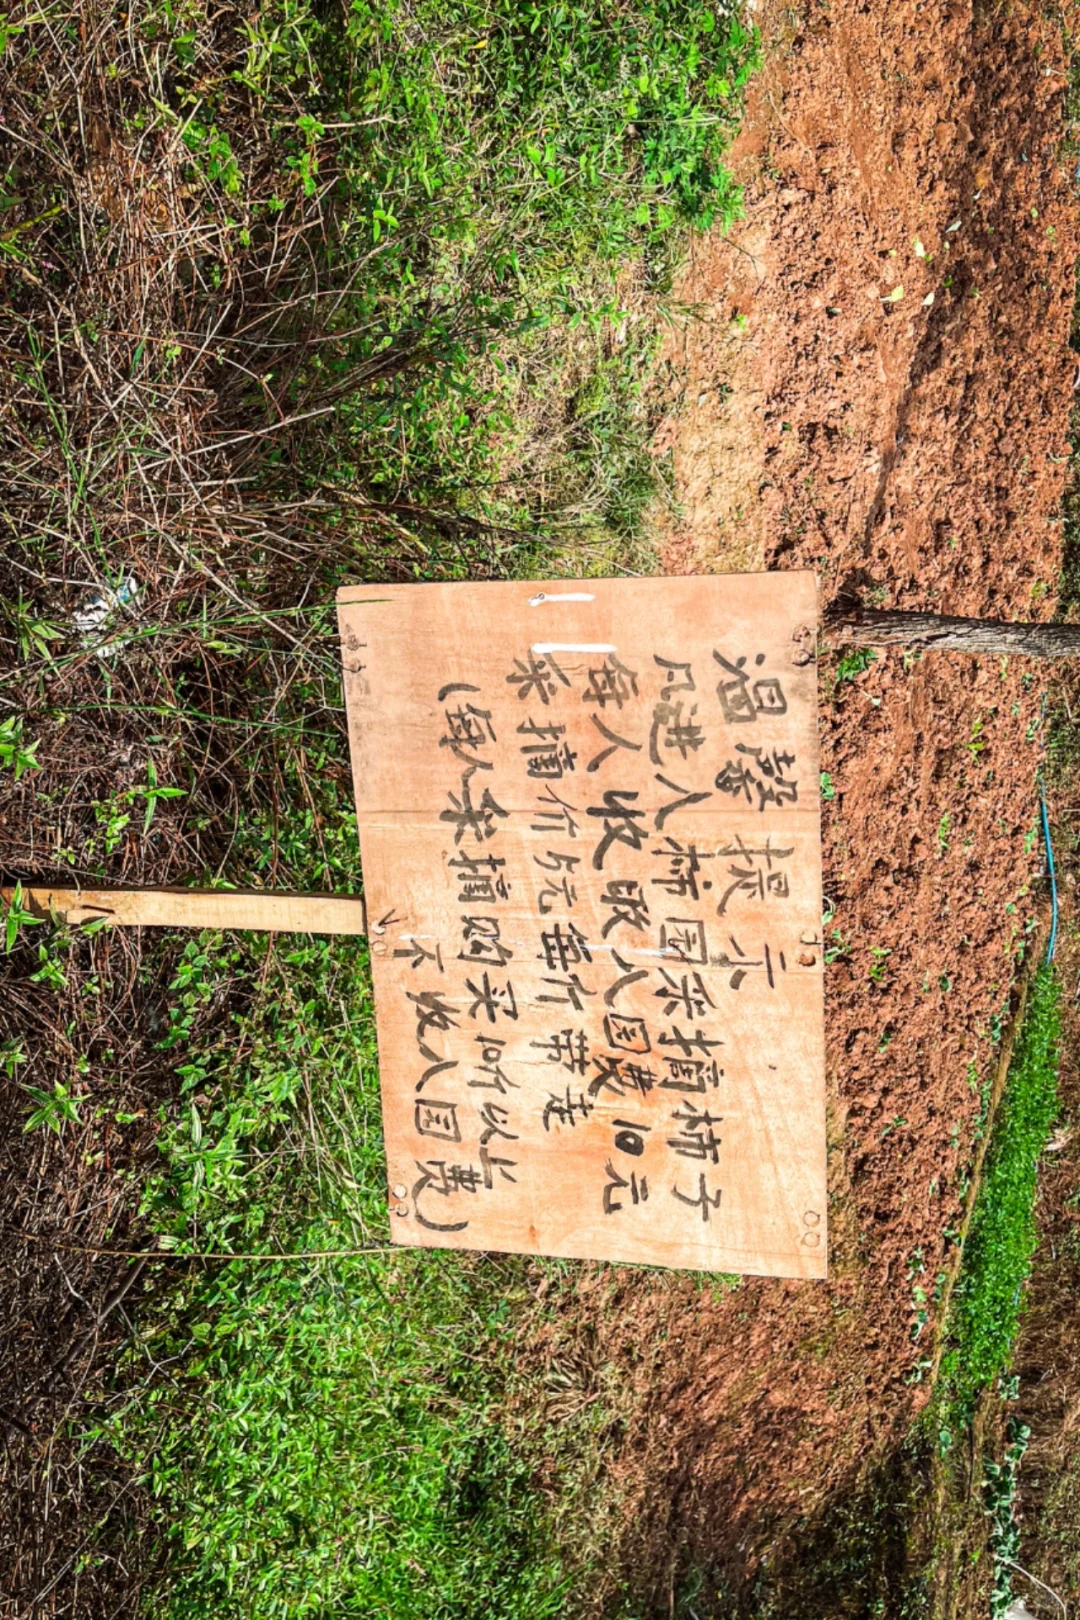 温馨提示
凡进入柿园采摘柿子
每人收取入园费10元
采摘价5元每斤带走
(每人采摘购买10斤以上
不收入园费)